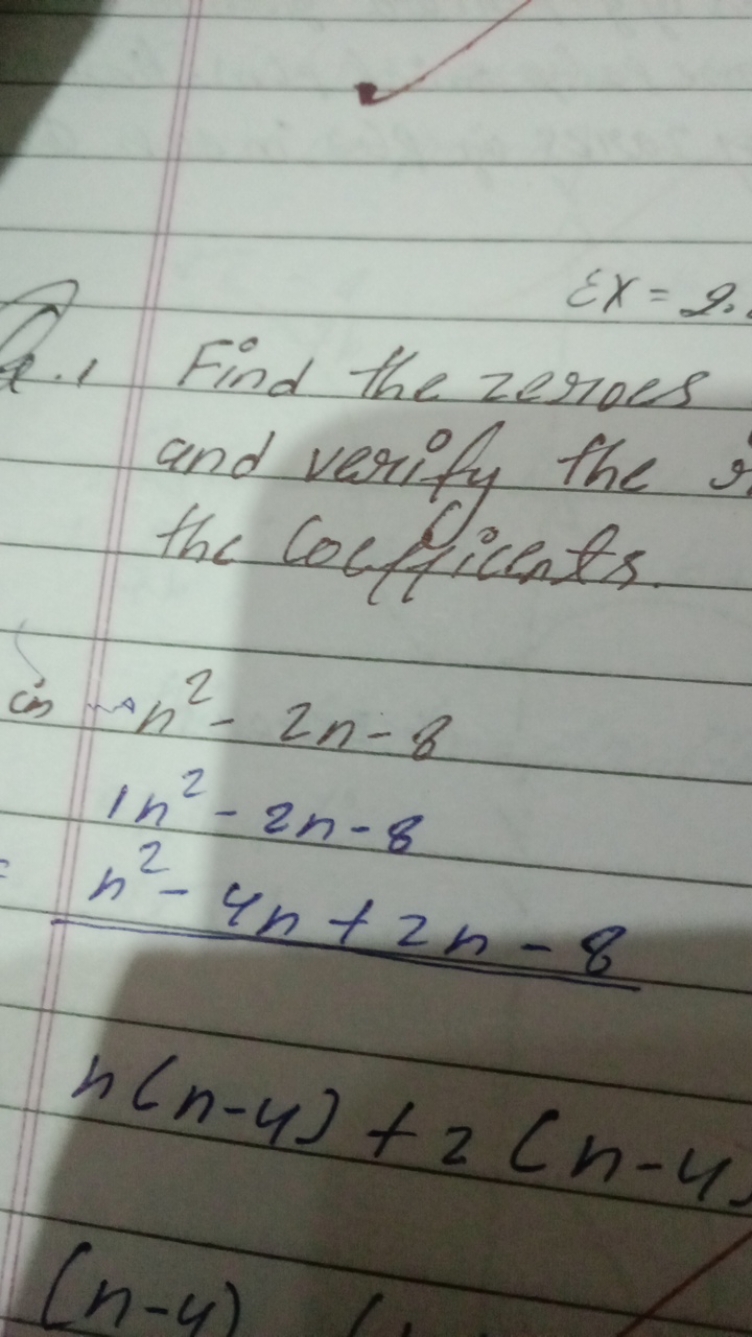 EX = 2.
Q.1 Find the zeroes
and verify the
the Coefficents.
n² - 2n - 8
1n² - 2n - 8
= n² - 4n + 2n - 8
n(n-4) + 2(n-4)
(n-4) (